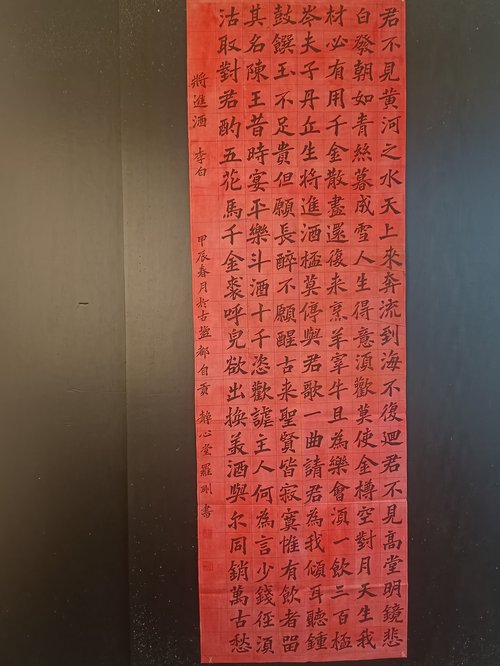 君不見黃河之水天上來奔流到海不復迴君不見高堂明鏡悲
白發朝如青絲暮成雪人生得意須歡莫使金樽空對月天生我
材必有用千金散盡還復来烹羊宰牛且為樂會須一飲三百桮
岑夫子丹丘生将進酒桮莫停與君歌一曲請君為我傾耳聽鍾
鼓饌玉不足貴但願長醉不願醒古来聖賢皆寂寞惟有飲者留
其名陳王昔時宴平樂斗酒十千恣歡謔主人何為言少錢徑須
沽取對君酌五花馬千金裘呼兒欲出換美酒與尔同銷萬古愁
將進酒 李白 甲辰春月於古鹽都自貢 靜心堂羅剛書